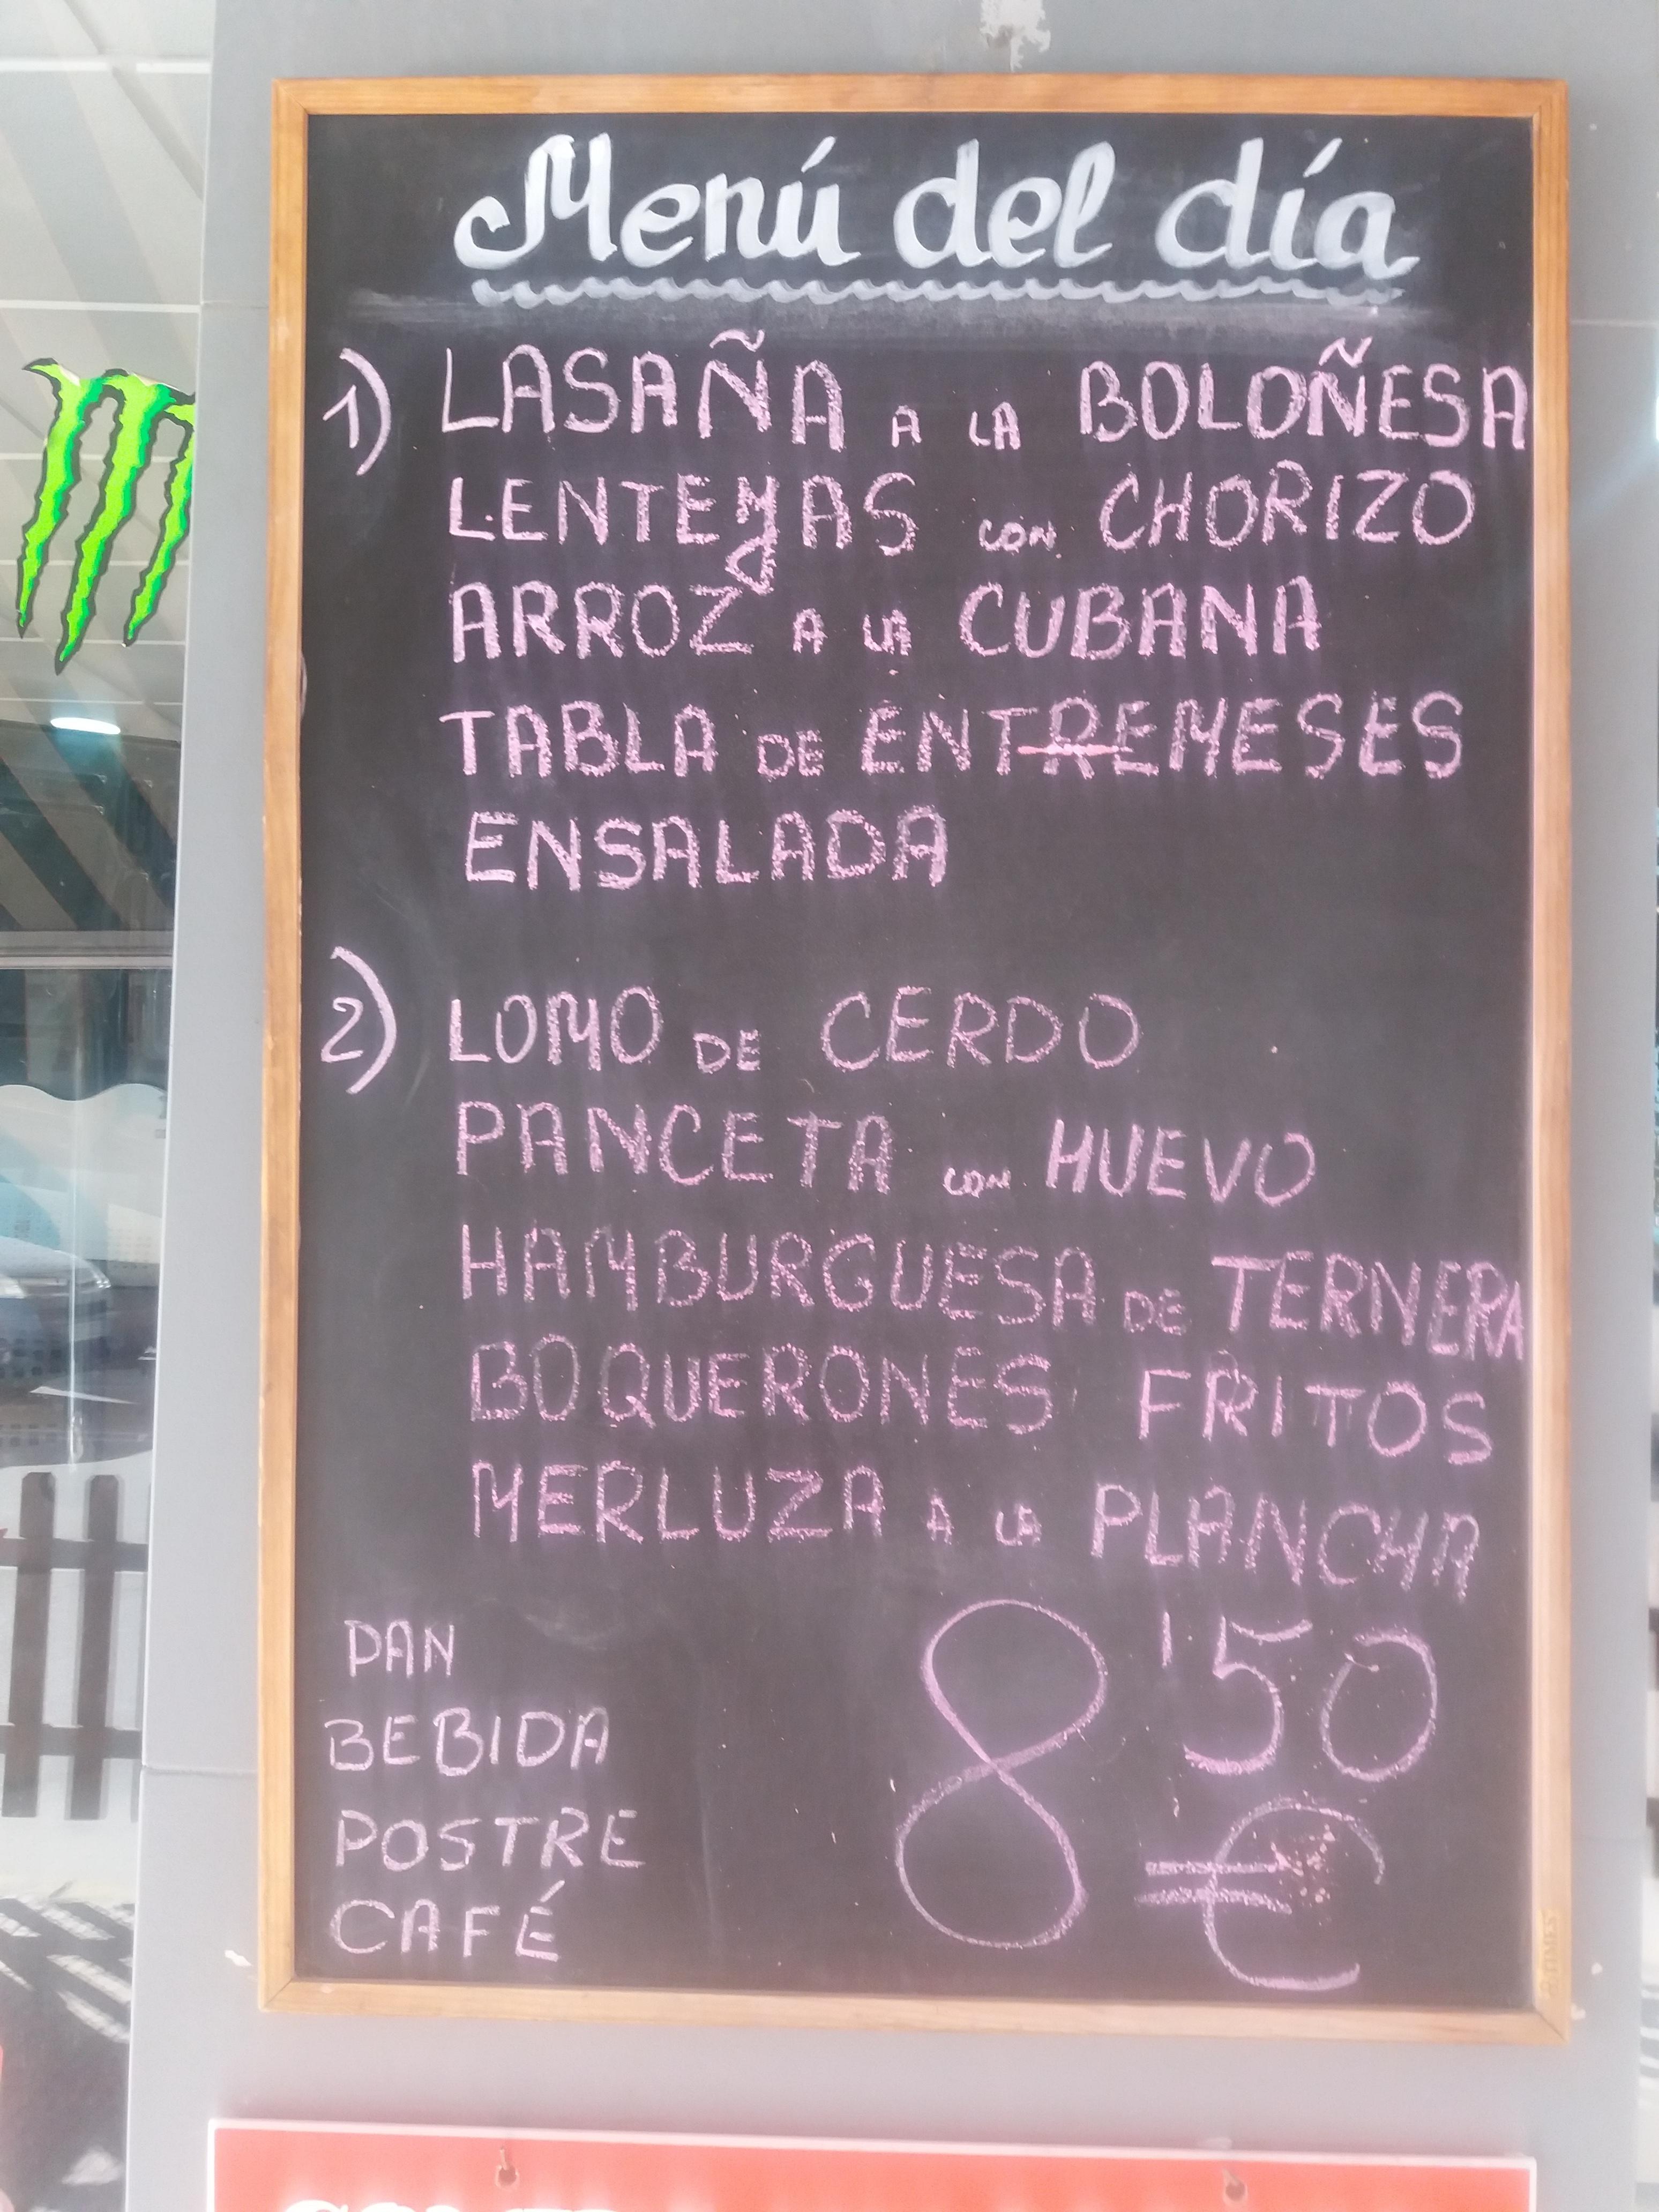 Menú del día
1) LASAÑA A LA BOLOÑESA
LENTEYAS CON CHORIZO
ARROZ A LA CUBANA
TABLA DE ENTREMESES
ENSALADA
2) LOMO DE CERDO
PANCETA CON HUEVO
HAMBURGUESA DE TERNERA
BOQUERONES FRITOS
MERLUZA A LA PLANCHA
PAN
BEBIDA
POSTRE
CAFÉ
8'50
€